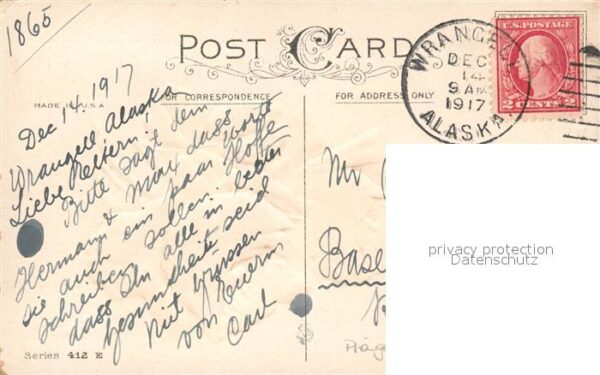 1865
POST CARD
WRANGELL
DEC
14
9 AM
1917
ALASKA
U.S. POSTAGE
2 CENTS 2
MADE IN U.S.A
FOR CORRESPONDENCE
FOR ADDRESS ONLY
Dec 14. 1917
Wrangell Alaska
Liebe Eltern,
Bitte sagt dem
Hermann & Max dass
sie auch ein paar Worte
schreiben sollen. Hoffe
dass Ihr alle in bester
Gesundheite seid
Mit Grüssen
von Euerm
Carl
Mr
Base
Series 412 E
privacy protection
Datenschutz